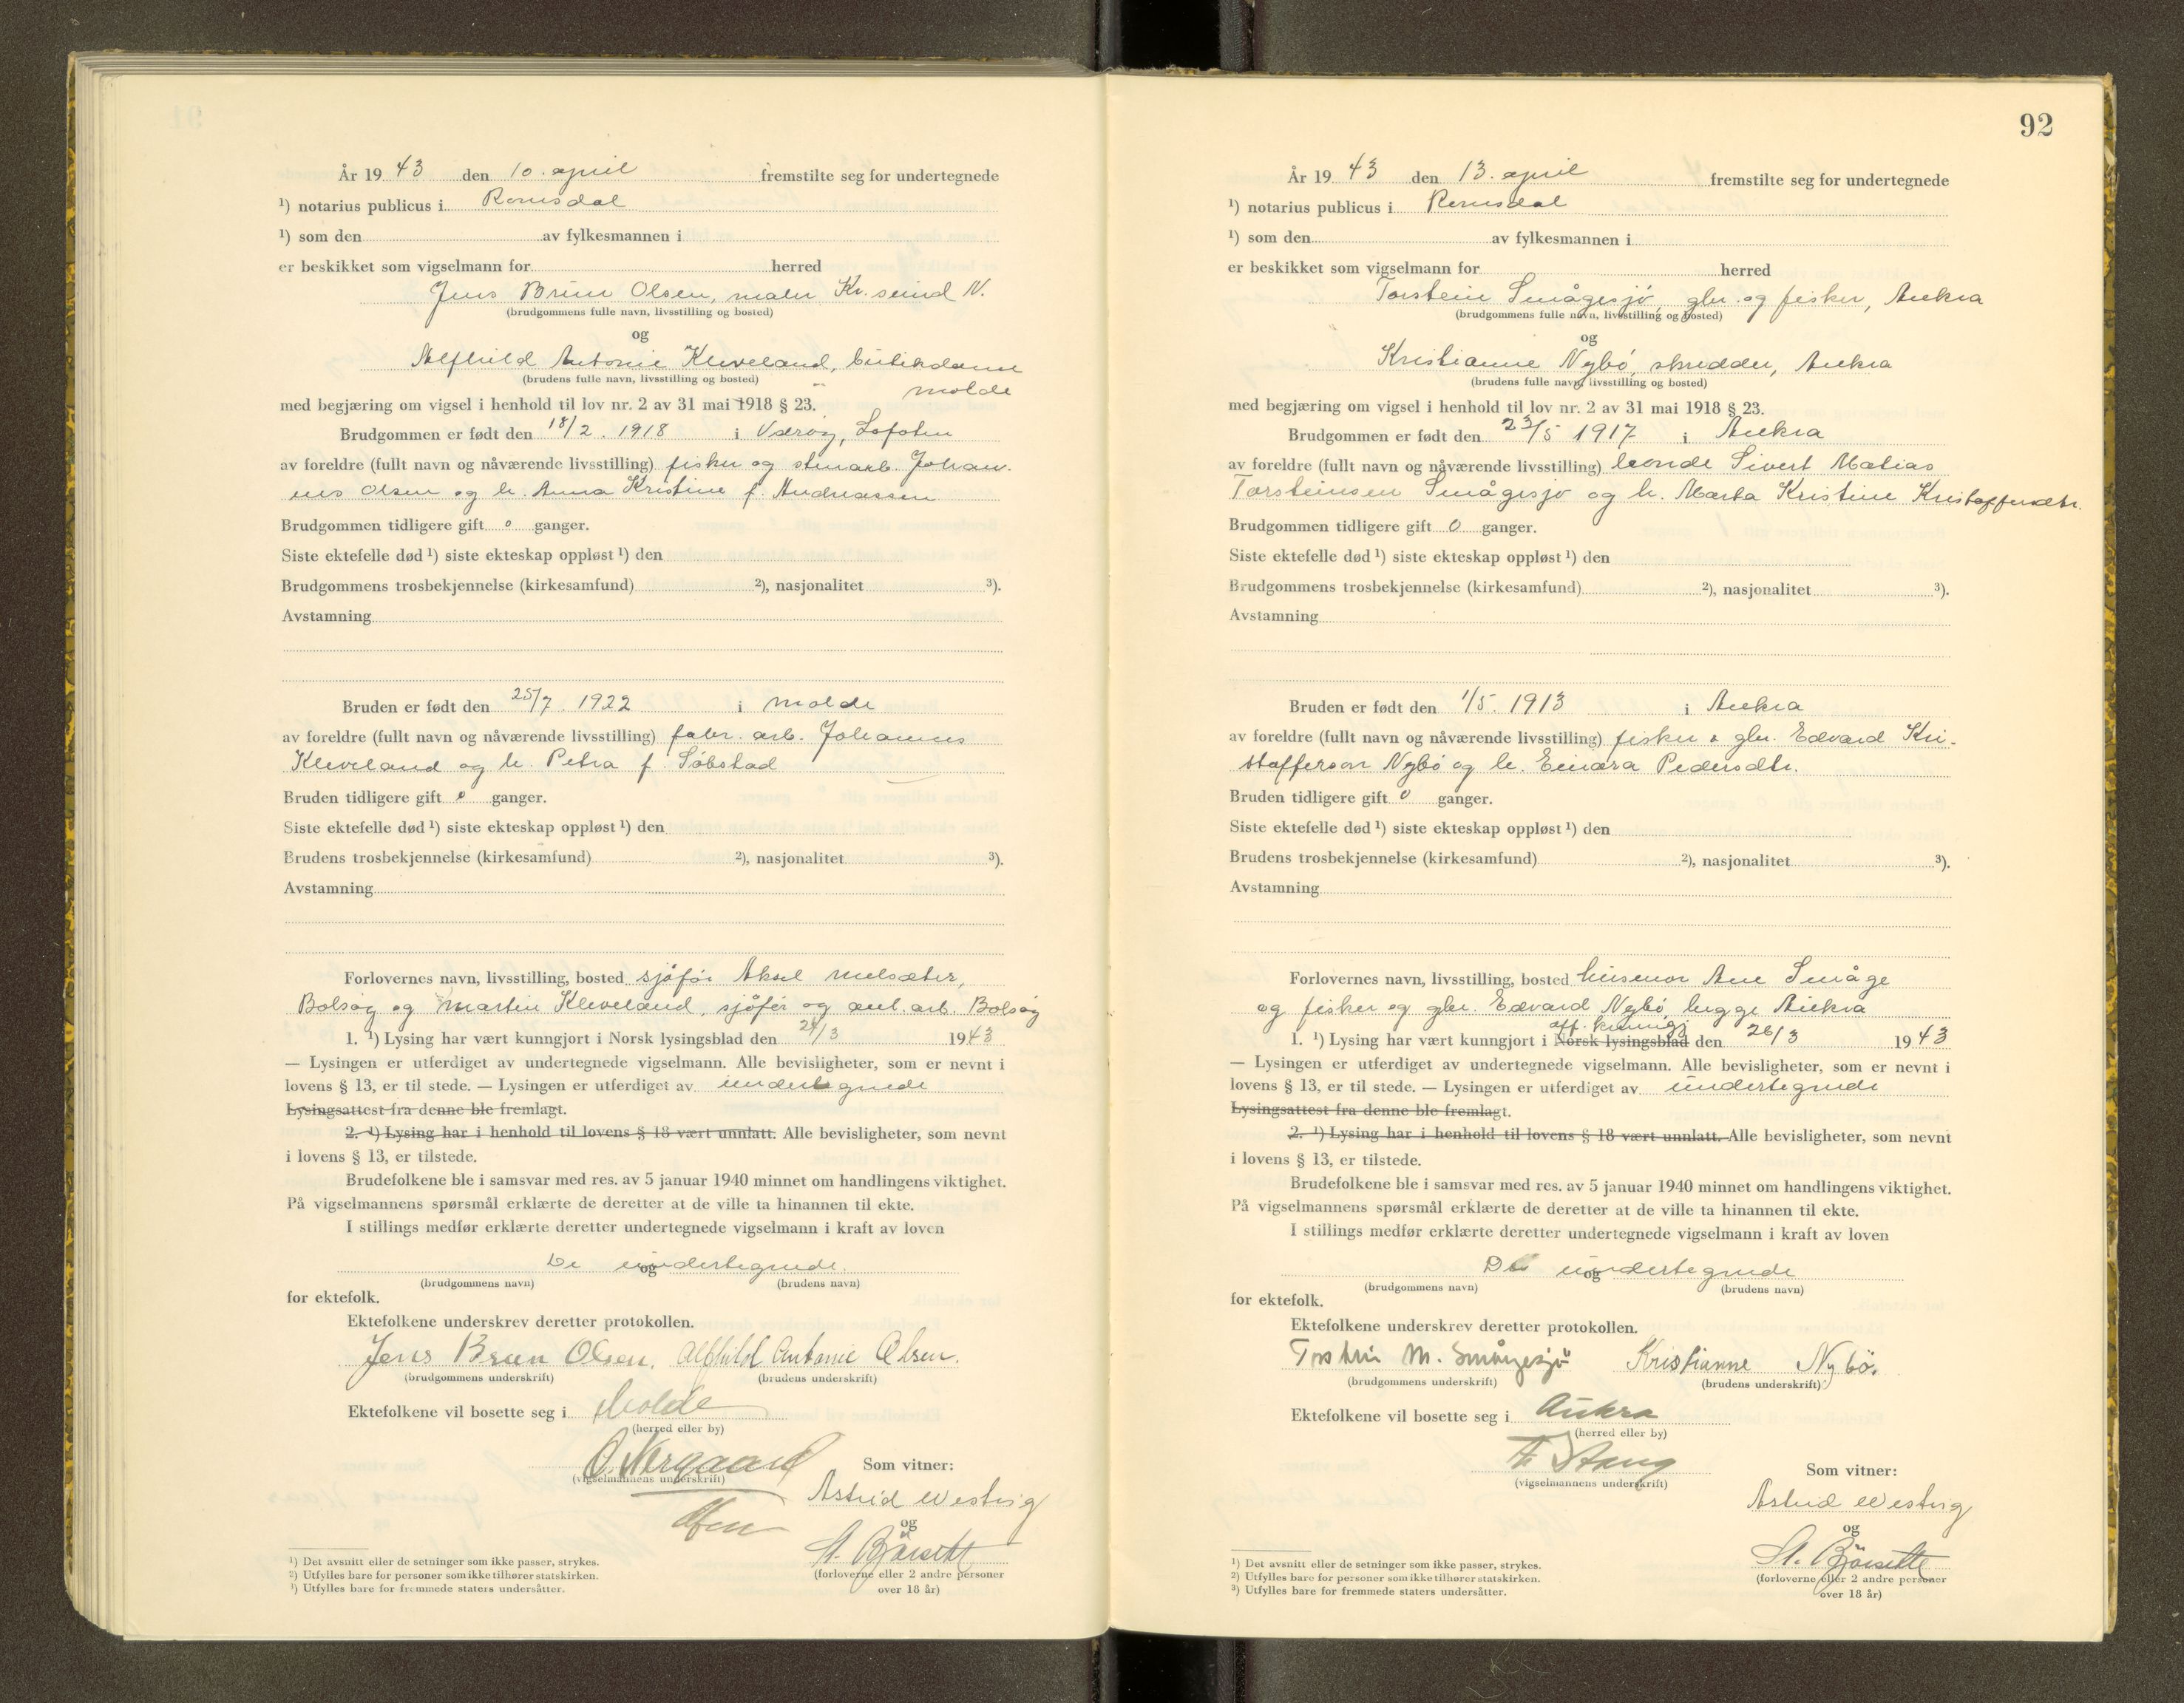 År 19 43 den 10. april fremstilte seg for undertegnede
¹) notarius publicus i Romsdal
¹) som den av fylkesmannen i
er beskikket som vigselmann for herred
Jens Brun Olsen, maler Kr.sund N.
(brudgommens fulle navn, livsstilling og bosted)
og
Alfhild Antonie Kleveland, butikdame
(brudens fulle navn, livsstilling og bosted)
Molde
med begjæring om vigsel i henhold til lov nr. 2 av 31 mai 1918 § 23.
Brudgommen er født den 18/2. 1918 i Værøy, Lofoten
av foreldre (fullt navn og nåværende livsstilling) fisker og stenarb. Johan-
nes Olsen og h. Anna Kristine f. Andreassen
Brudgommen tidligere gift 0 ganger.
Siste ektefelle død ¹) siste ekteskap oppløst ¹) den
Brudgommens trosbekjennelse (kirkesamfund) ²), nasjonalitet ³).
Avstamning
Bruden er født den 25/7. 1922 i Molde
av foreldre (fullt navn og nåværende livsstilling) fabr. arb. Johannes
Kleveland og h. Petra f. Söbstad
Bruden tidligere gift 0 ganger.
Siste ektefelle død ¹) siste ekteskap oppløst ¹) den
Brudens trosbekjennelse (kirkesamfund) ²), nasjonalitet ³).
Avstamning
Forlovernes navn, livsstilling, bosted sjåfør Aksel Melsæter,
Bolsøy og Martin Kleveland, sjåfør og anl. arb. Bolsøy
1. ¹) Lysing har vært kunngjort i Norsk lysingsblad den 24/3 1943
— Lysingen er utferdiget av undertegnede vigselmann. Alle bevisligheter, som er nevnt i
lovens § 13, er til stede. — Lysingen er utferdiget av undertegnede
Lysingsattest fra denne ble fremlagt.
2. ¹) Lysing har i henhold til lovens § 18 vært unnlatt. Alle bevisligheter, som nevnt
i lovens § 13, er tilstede.
Brudefolkene ble i samsvar med res. av 5 januar 1940 minnet om handlingens viktighet.
På vigselmannens spørsmål erklærte de deretter at de ville ta hinannen til ekte.
I stillings medfør erklærte deretter undertegnede vigselmann i kraft av loven
De undertegnede
og
(brudgommens navn) (brudens navn)
for ektefolk.
Ektefolkene underskrev deretter protokollen.
Jens Brun Olsen. Alfhild Antonie Olsen.
(brudgommens underskrift) (brudens underskrift)
Ektefolkene vil bosette seg i Molde
(herred eller by)
O. Nergaard
(vigselmannens underskrift) Som vitner:
Astrid Westvig
og
(forloverne eller 2 andre personer
over 18 år)
¹) Det avsnitt eller de setninger som ikke passer, strykes.
²) Utfylles bare for personer som ikke tilhører statskirken.
³) Utfylles bare for fremmede staters undersåtter.
92
År 19 43 den 13. april fremstilte seg for undertegnede
¹) notarius publicus i Romsdal
¹) som den av fylkesmannen i
er beskikket som vigselmann for herred
Torstein Smågesjö, gbr. og fisker, Aukra
(brudgommens fulle navn, livsstilling og bosted)
og
Kristianne Nybö, skredder, Aukra
(brudens fulle navn, livsstilling og bosted)
med begjæring om vigsel i henhold til lov nr. 2 av 31 mai 1918 § 23.
Brudgommen er født den 23/5 1917 i Aukra
av foreldre (fullt navn og nåværende livsstilling) bonde Sivert Matias
Torsteinsen Smågesjö og h. Marta Kristine Kristoffersdtr.
Brudgommen tidligere gift 0 ganger.
Siste ektefelle død ¹) siste ekteskap oppløst ¹) den
Brudgommens trosbekjennelse (kirkesamfund) ²), nasjonalitet ³).
Avstamning
Bruden er født den 1/5. 1913 i Aukra
av foreldre (fullt navn og nåværende livsstilling) fisker & gbr. Edvard Kri-
stofferson Nybö og h. Einara Pedersdtr.
Bruden tidligere gift 0 ganger.
Siste ektefelle død ¹) siste ekteskap oppløst ¹) den
Brudens trosbekjennelse (kirkesamfund) ²), nasjonalitet ³).
Avstamning
Forlovernes navn, livsstilling, bosted husmor Ane Småge
og fisker og gbr. Edvard Nybö, begge Aukra
off. kunngj.
1. ¹) Lysing har vært kunngjort i Norsk lysingsblad den 26/3 1943
— Lysingen er utferdiget av undertegnede vigselmann. Alle bevisligheter, som er nevnt i
lovens § 13, er til stede. — Lysingen er utferdiget av undertegnede
Lysingsattest fra denne ble fremlagt.
2. ¹) Lysing har i henhold til lovens § 18 vært unnlatt. Alle bevisligheter, som nevnt
i lovens § 13, er tilstede.
Brudefolkene ble i samsvar med res. av 5 januar 1940 minnet om handlingens viktighet.
På vigselmannens spørsmål erklærte de deretter at de ville ta hinannen til ekte.
I stillings medfør erklærte deretter undertegnede vigselmann i kraft av loven
De undertegnede
og
(brudgommens navn) (brudens navn)
for ektefolk.
Ektefolkene underskrev deretter protokollen.
Torstein M. Smågesjö Kristianne Nybö.
(brudgommens underskrift) (brudens underskrift)
Ektefolkene vil bosette seg i Aukra
(herred eller by)
Stang
(vigselmannens underskrift) Som vitner:
Astrid Westvig
og
(forloverne eller 2 andre personer
over 18 år)
¹) Det avsnitt eller de setninger som ikke passer, strykes.
²) Utfylles bare for personer som ikke tilhører statskirken.
³) Utfylles bare for fremmede staters undersåtter.